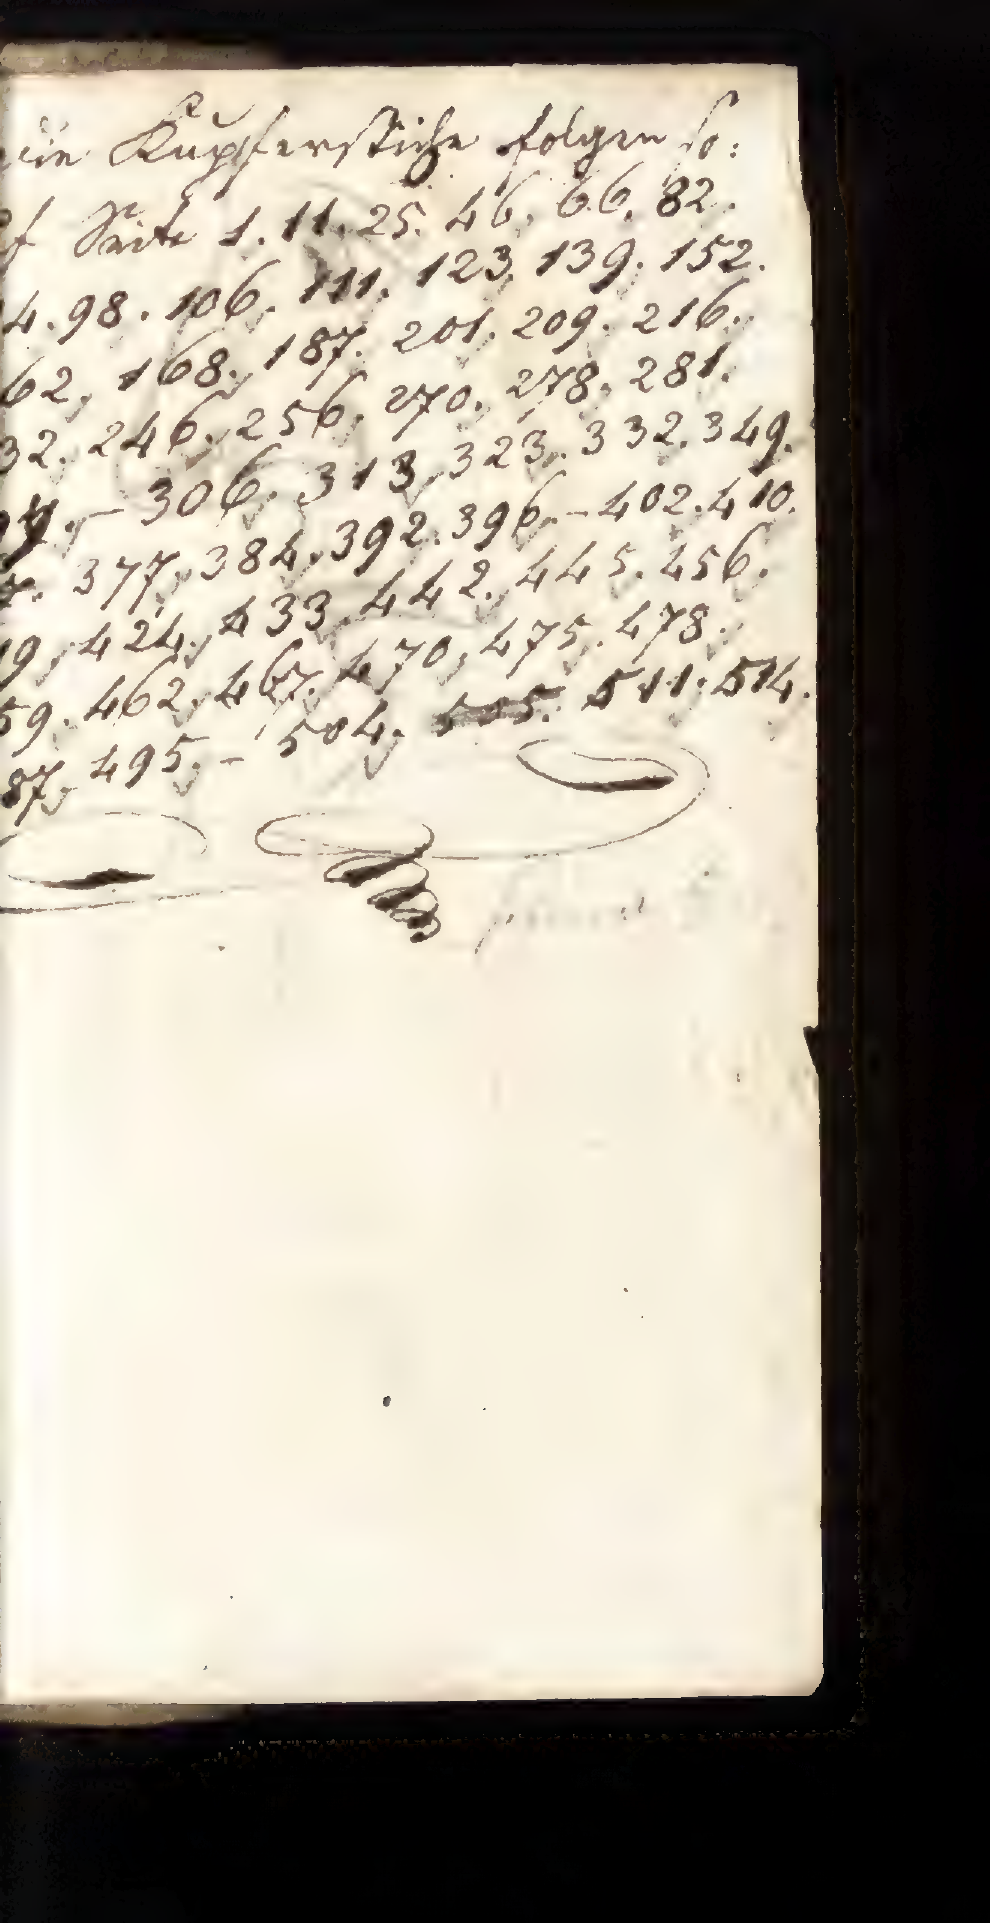 die Kupferstiche folgen so:
f Seite 1. 11. 25. 46. 66. 82.
4. 98. 106. 111. 123. 139. 152.
62. 168. 187. 201. 209. 216.
32. 246. 256. 270. 278. 281.
– 306. 313. 323. 332. 349.
7. 377. 384. 392. 396. – 402. 410.
19. 424. 433. 442. 445. 456.
59. 462. 467. 470. 475. 478.
87. 495. – 504. 505. 511. 514.